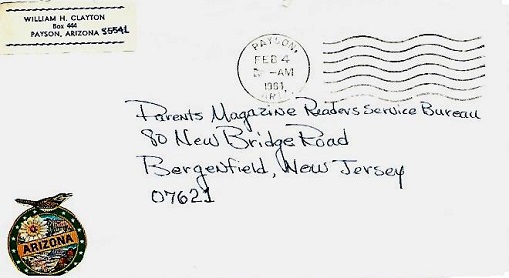 WILLIAM H. CLAYTON
Box 444
PAYSON, ARIZONA 85541
PAYSON,
FEB 4
-AM
1981
ARIZ.
Parents Magazine Readers Service Bureau
80 New Bridge Road
Bergenfield, New Jersey
07621
ARIZONA